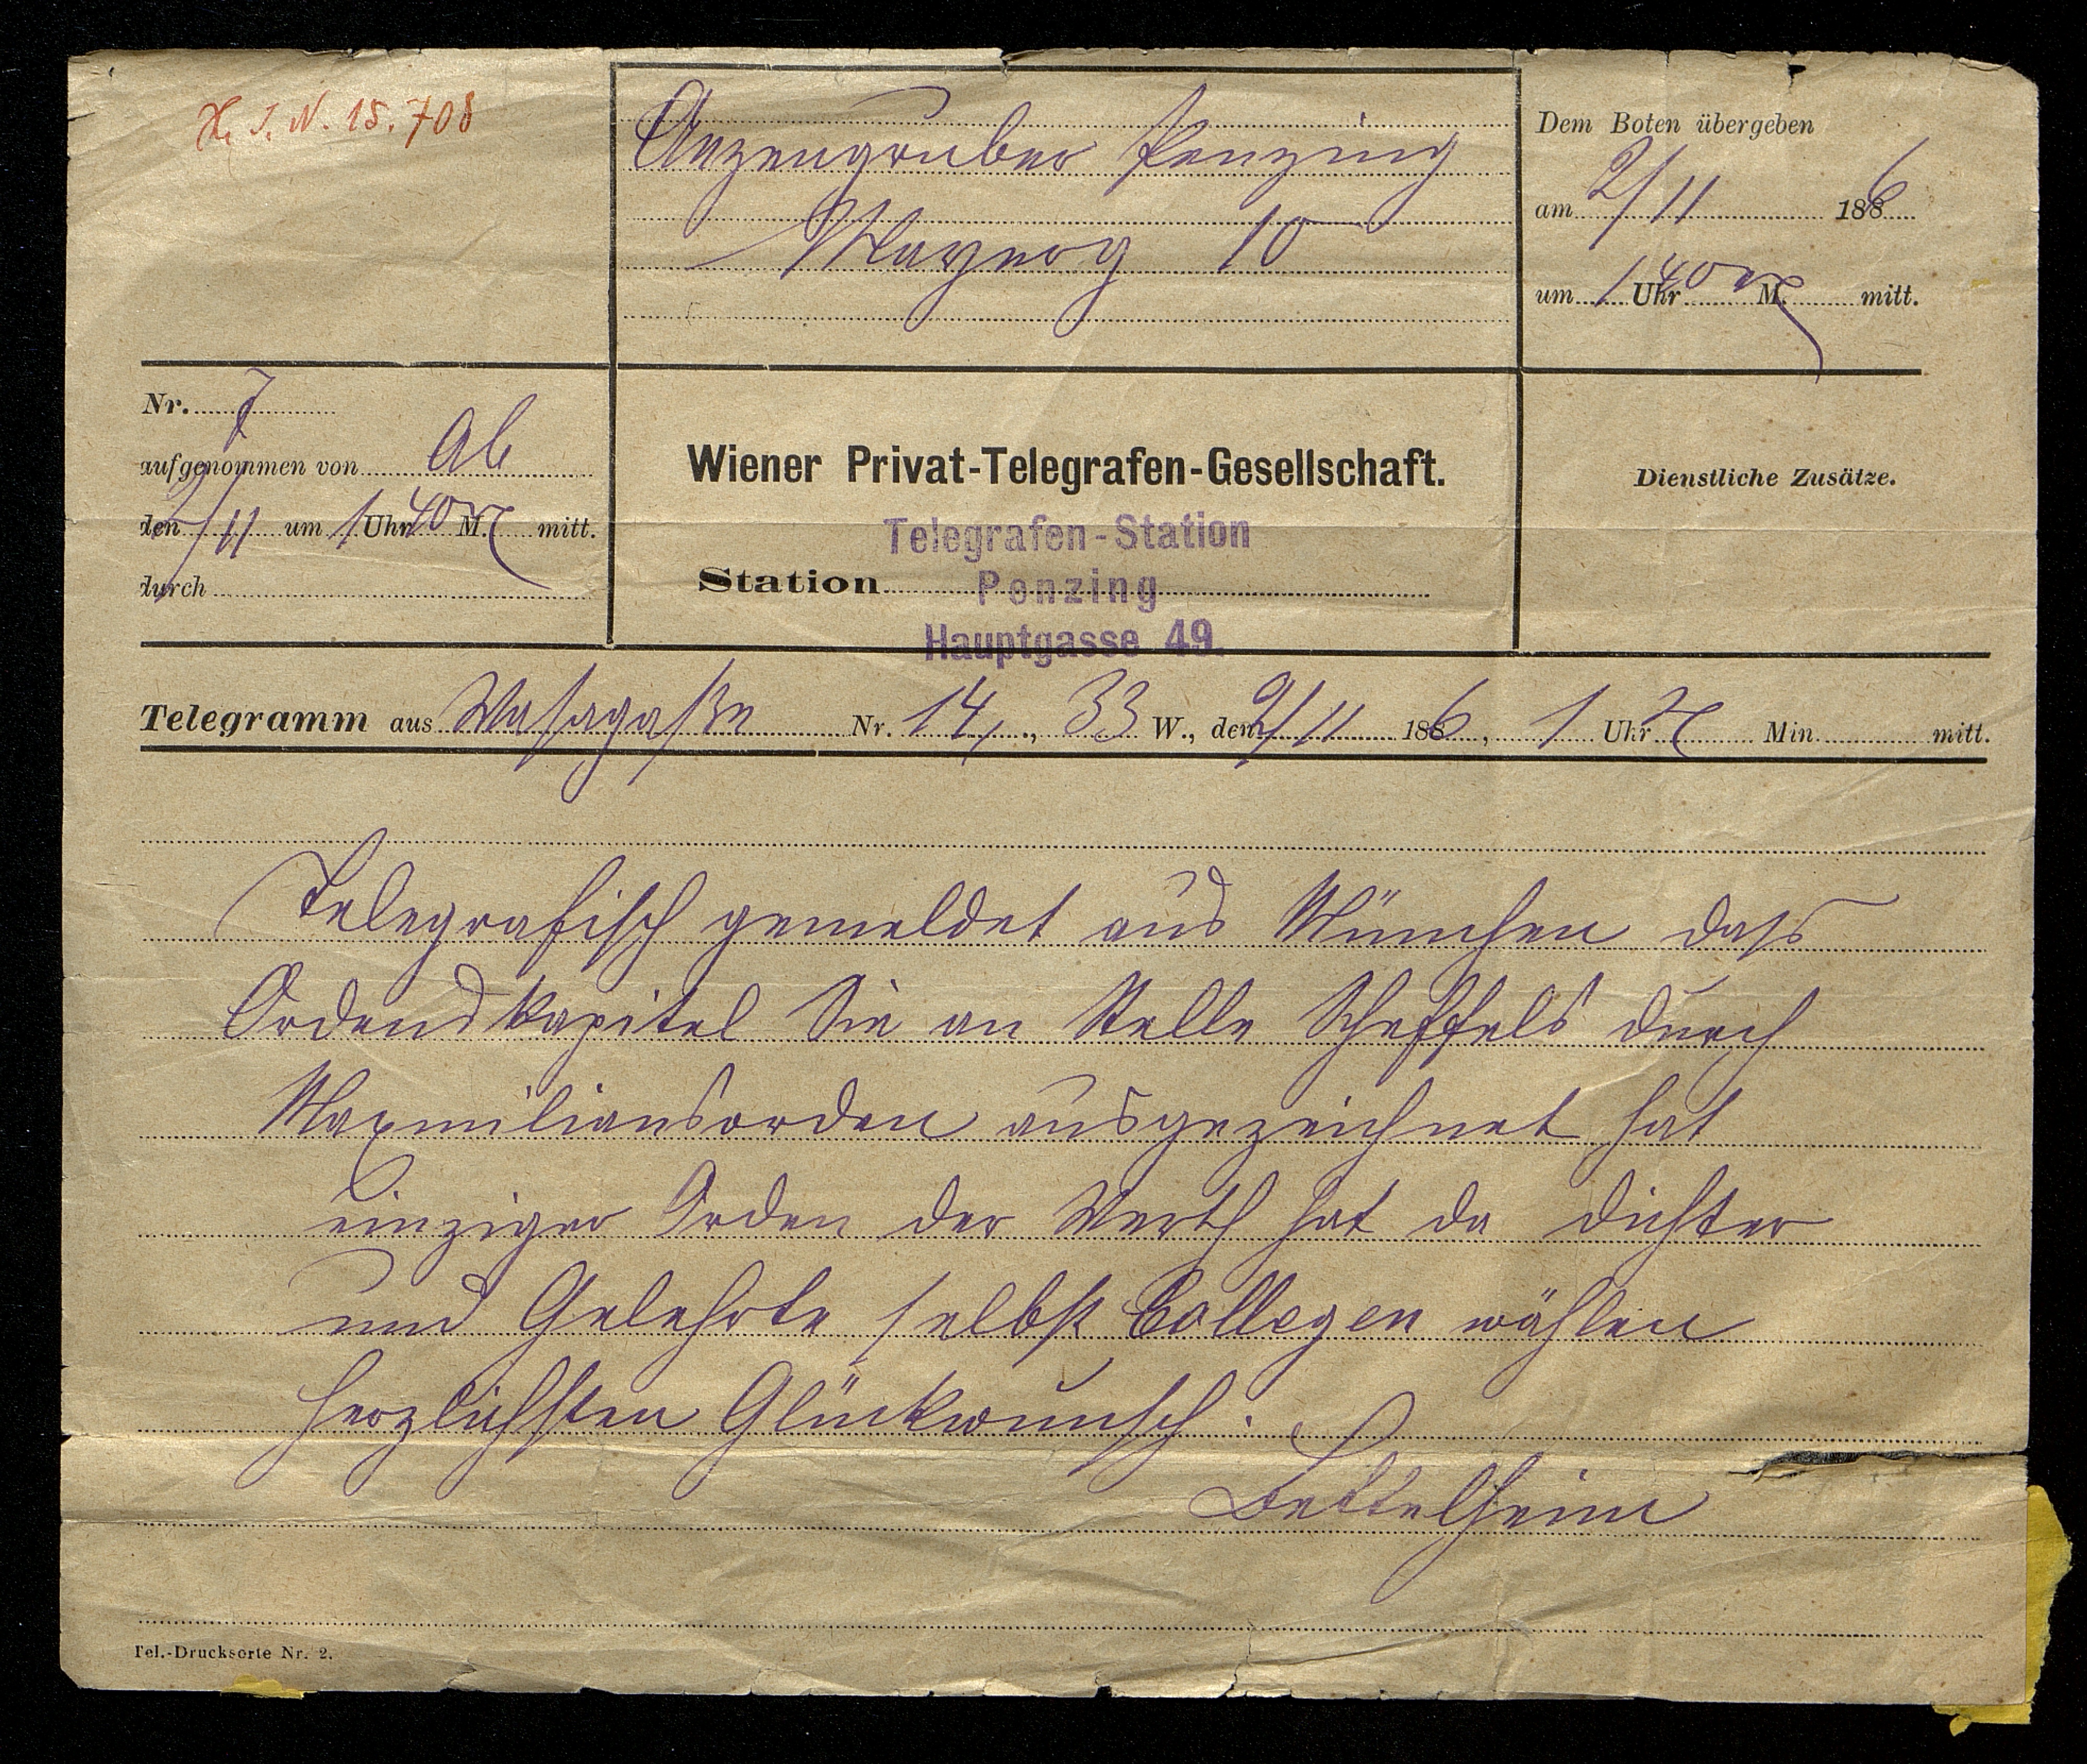 H. I. N. 15.708
Anzengruber Penzing
Mayerg 10
Dem Boten übergeben
am 2/11 1886
um 1 Uhr 40 M. mitt.
Nr. 7
aufgenommen von Ab
den 2/11 um 1 Uhr 40 M. mitt.
durch
Wiener Privat-Telegrafen-Gesellschaft.
Telegrafen-Station
Station Penzing
Hauptgasse 49.
Dienstliche Zusätze.
Telegramm aus Wasagaße Nr. 14, 33 W., den 2/11 1886, 1 Uhr Min. mitt.
Telegrafisch gemeldet aus München dass
Ordenskapitel Sie an Stelle Scheffels durch
Maxmiliansorden ausgezeichnet hat
einziger Orden der Werth hat da dichter
und Gelehrte selbst Collegen wählen
herzlichsten Glückwunsch.
Bettelheim
Tel.-Drucksorte Nr. 2.